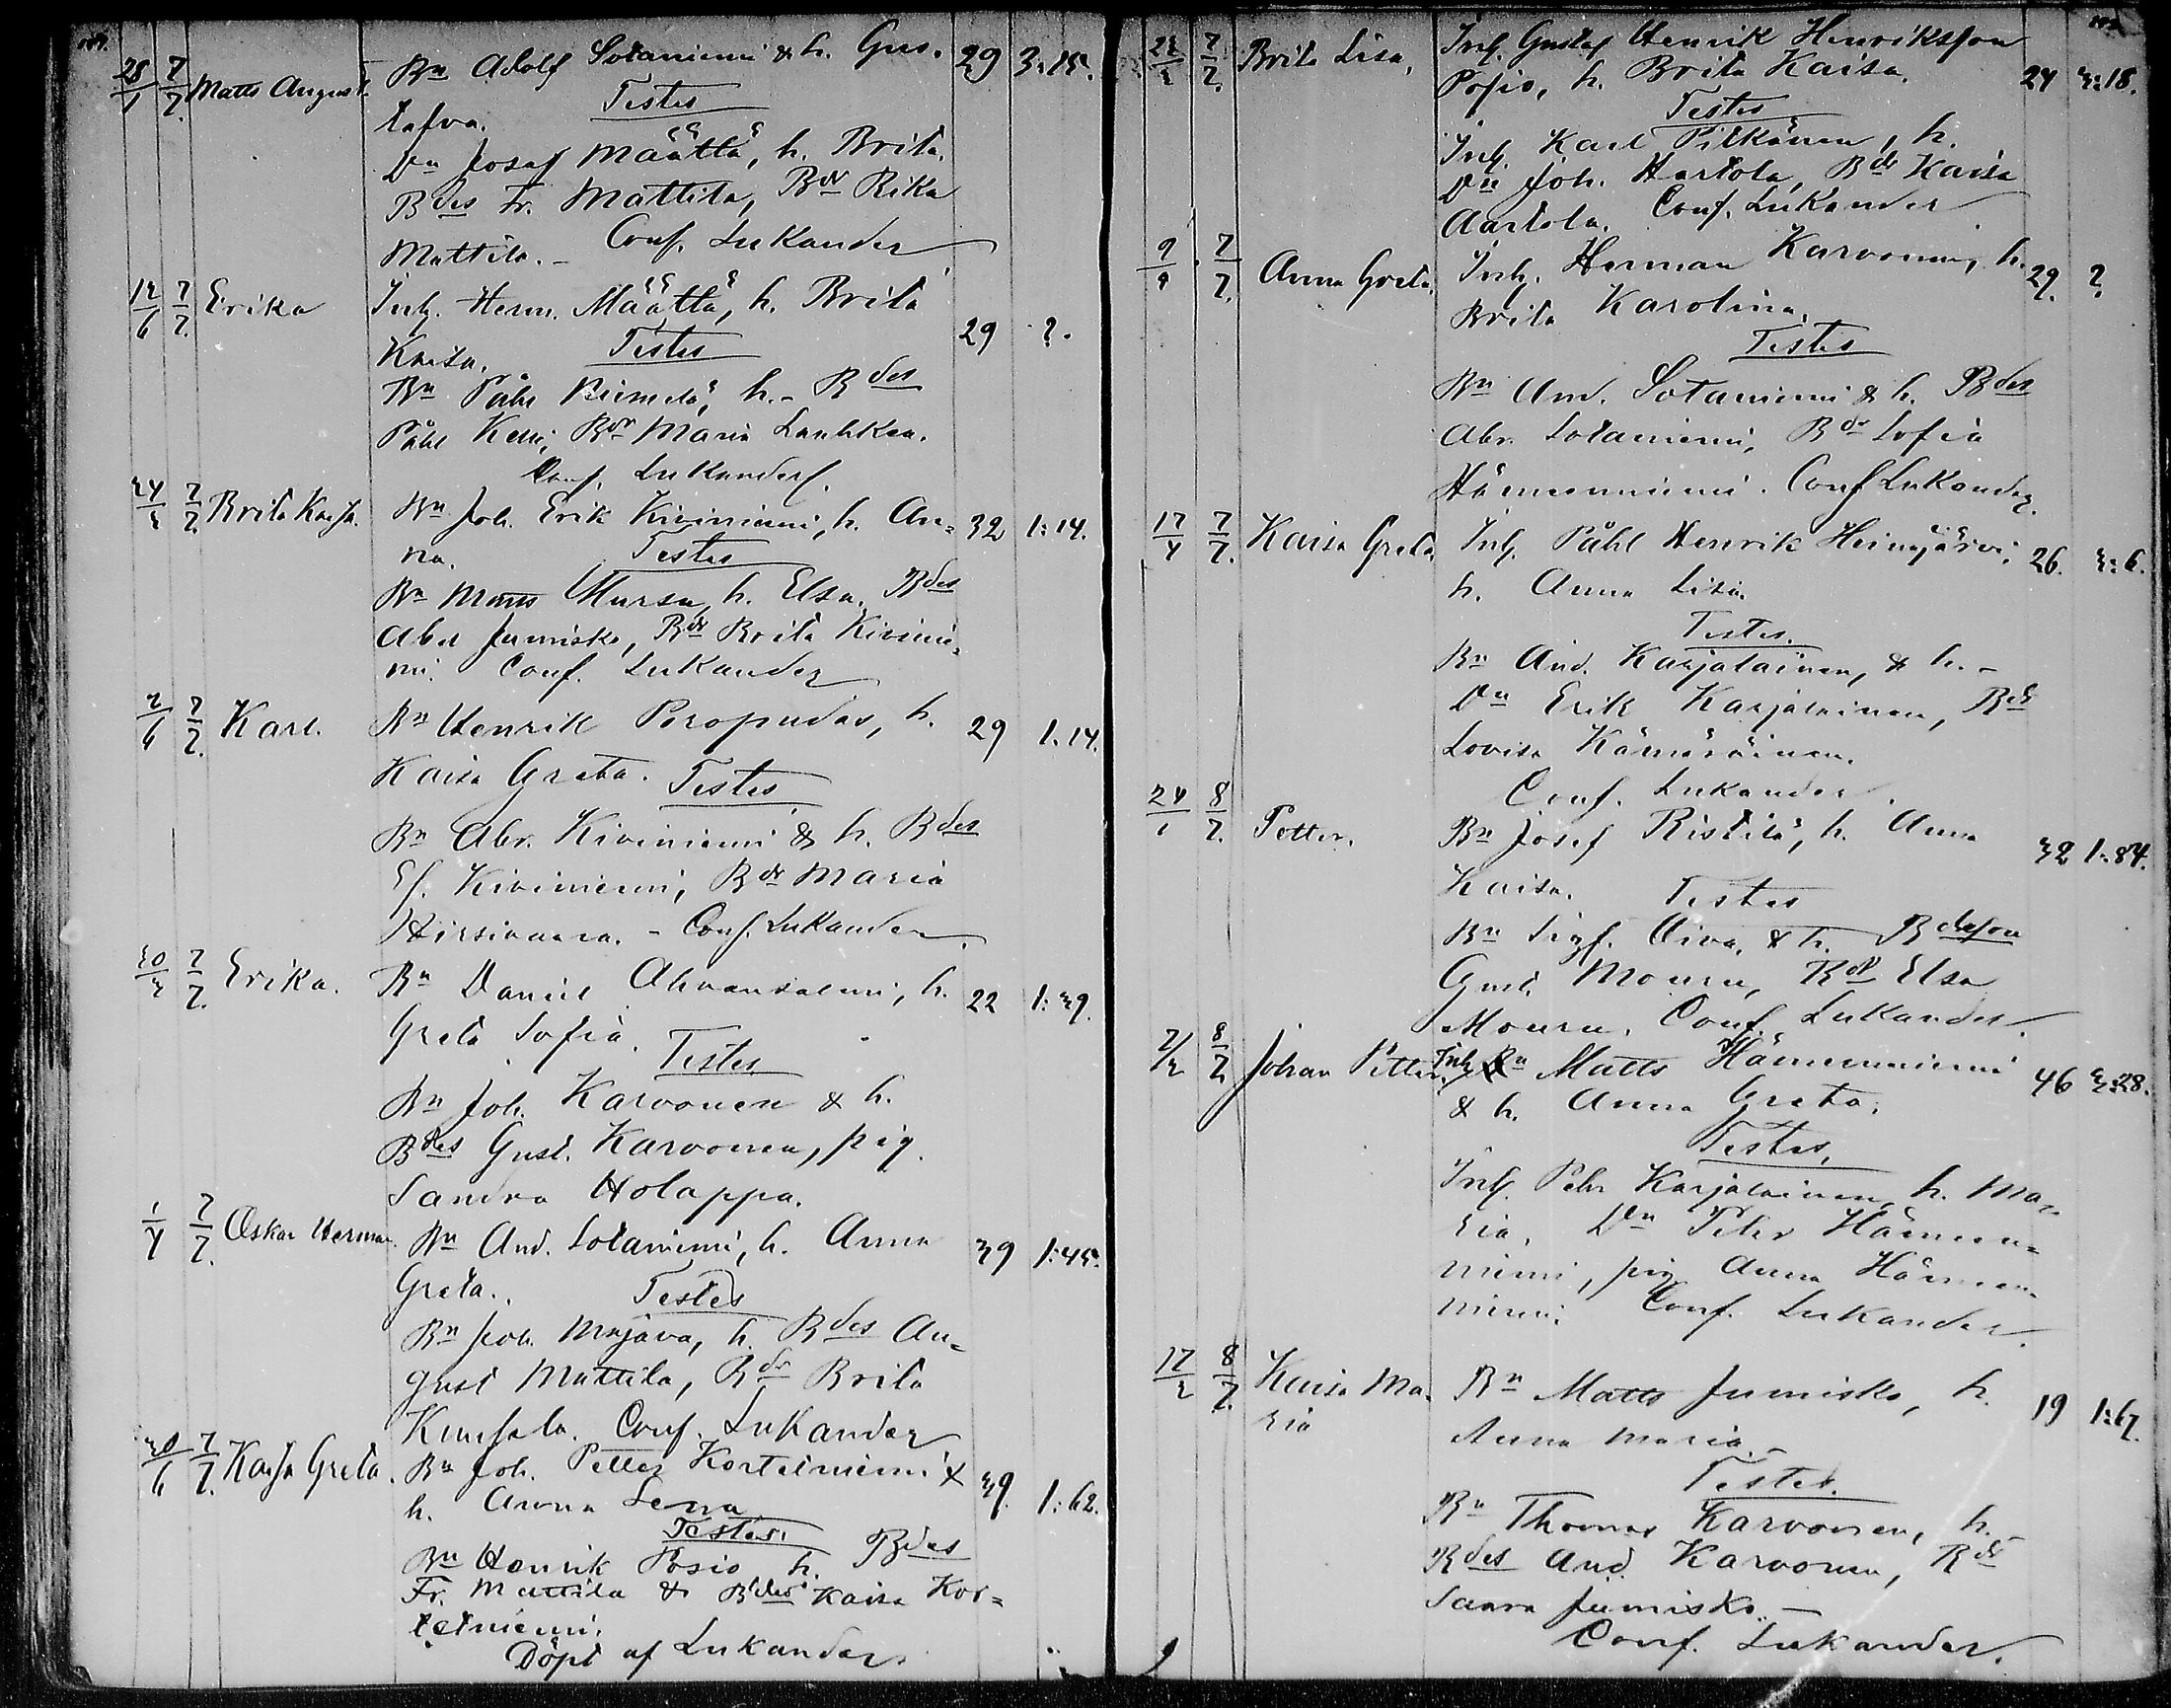 28/1 7/7 Matts August. Bn Adolf Sotaniemi & h. Gus- 29 3:15.
tafva. Testes
Dn Josef Määttä, h. Brita.
Bdes Fr. Mattila, Bdr Rika
Mattila. - Conf. Lukander
12/6 7/7 Erika Inh. Herm. Määttä, h. Brita 29 ?.
Kaisa. Testes
Bn Påhl h. - Bdes
Påhl Kemi, Bdr Maria
Conf. Lukander.
24/3 7/7 Brita Kajsa. Bn Joh. Erik Kiviniemi, h. An= 32 1:14.
na. Testes
Bn Matts Mursu, h. Elsa. Bdes
Abel Jumisko, Bdr Brita Kivinie=
mi. Conf. Lukander
2/6 7/7 Karl. Bn Henrik Poropudas, h. 29 1.14.
Kaisa Greta. Testes
Bn Abr. Kiviniemi & h. Bdes
Es. Kiviniemi, Bdr Maria
Hirsivaara. - Conf. Lukander.
30/3 7/7. Erika. Bn Daniel Ahvensalmi, h. 22 1:39.
Greta Sofia. Testes
Bn Joh. Karvonen & h.
Bdes Gust. Karvonen, pig.
Sandra Holappa.
1/4 7/7. Oskar Herman. Bn And. Sotaniemi, h. Anna 39 1:45.
Greta. Testes
Bn Joh. Majava, h. Bdes Au=
gust Mattila, Bdr Brita
Conf. Lukander
30/6 7/7. Kajsa Greta. Bn Joh. Petter Kortetniemi & 39. 1:62.
h. Anna Lena
Testes.
Bn Henrik Posio h. Bdes
Fr. Mattila & Bdes Kaisa Kor=
tetniemi.
Döpt af Lukander.
7/7. Brita Lisa, Inh. Gustaf Henrik Henriksson 24 3:18.
Posio, h. Brita Kaisa.
Testes
Inh. Karl Pitkänen, h.
Dn Joh. Hartola, Bdr Kaisa
Aartola. Conf. Lukander
9/4 7/7. Anna Greta. Inh. Herman Karvonen, h. 29. ?
Brita Karolina.
Testes
Bn And. Sotaniemi & h. Bdes
Abr. Sotaniemi, Bdr Sofia
Hämeenniemi. Conf Lukander.
17/4 7/7. Kaisa Greta, Inh. Påhl Henrik Heinijärvi, 26. 3:6.
h. Anna Lisa.
Testes.
Bn And. Karjalainen, & h. -
Dn Erik Karjalainen, Bdr
Lovisa Kämäräinen.
Conf. Lukander.
24/1 8/7. Petter. Bn Josef Ristilä, h. Anna 32 1:84.
Kaisa. Testes
Bn Sigf. Oiva, & h. Bdesson
Gust. Mouru, Bdr Elsa
Mouru. Conf. Lukander.
2/3 8/7. Johan Petter. Inh. Matts Hämeenniemi 46 3:28.
& h. Anna Greta.
Testes.
Inh. Pehr Karjalainen, h. Ma=
ria, Dn Petter Hämeen=
niemi, pig Anna Hämeen=
niemi. Conf. Lukander.
17/3 8/7. Kaisa Ma= Bn Matts Jumisko, h. 19 1:67.
ria Anna Maria. -
Testes.
Bn Thomas Karvonen, h. -
Bdes And. Karvonen, Bdr
Saara Jumisko. -
Conf. Lukander.